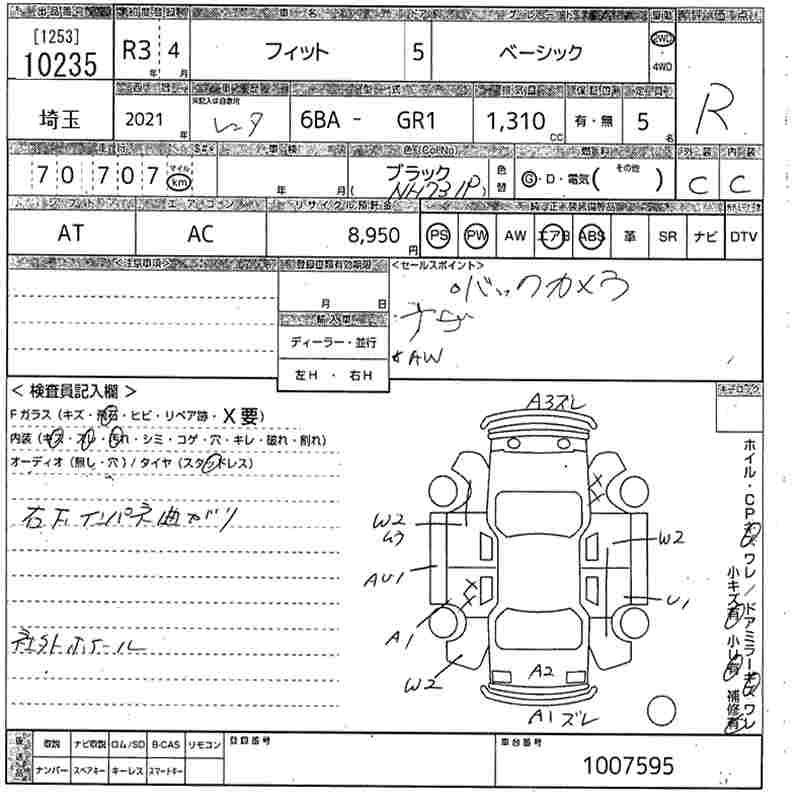 出品番号 初度登録年 車名 ドア グレード 駆動 評価点
[1253]
10235
R3 年 4 月 フィット 5 ベーシック 2WD 4WD R
西暦 車歴 型式 排気量 保証書 定員
埼玉 2021 年 レンタ 6BA - GR1 1,310 CC 有・無 5 名
走行 車検 色(Col No) 燃料 外装 内装
70707 マイル km 年 月( ブラック NH731P) 色替 G・D・電気( その他 ) C C
シフト エアコン リサイクル預託金 純正装備品
AT AC 8,950 円 PS PW AW エアB ABS 革 SR ナビ DTV
<注意事項> 登録書類有効期限 <セールスポイント>
月 日 バックカメラ
輸入車 ナビ
ディーラー・並行 AW
左H ・ 右H
< 検査員記入欄 > キーロック
Fガラス (キズ・飛石・ヒビ・リペア跡・X要)
内装 (キズ・スレ・汚れ・シミ・コゲ・穴・キレ・破れ・割れ)
オーディオ (無し・穴) / タイヤ (スタッドレス)
右下インパネ曲がり
社外ホイール
A3ズレ
W2
W3
W2
AU1
U1
A1
W2
A2
A1ズレ
ホイル・CPキズ、ワレ/ドアミラーキズ、ワレ
小キズ有 小U有 補修有
後送品 取説 ナビ取説 ロム/SD B-CAS リモコン 登録番号 車台番号
ナンバー スペアキー キーレス スマートキー 1007595